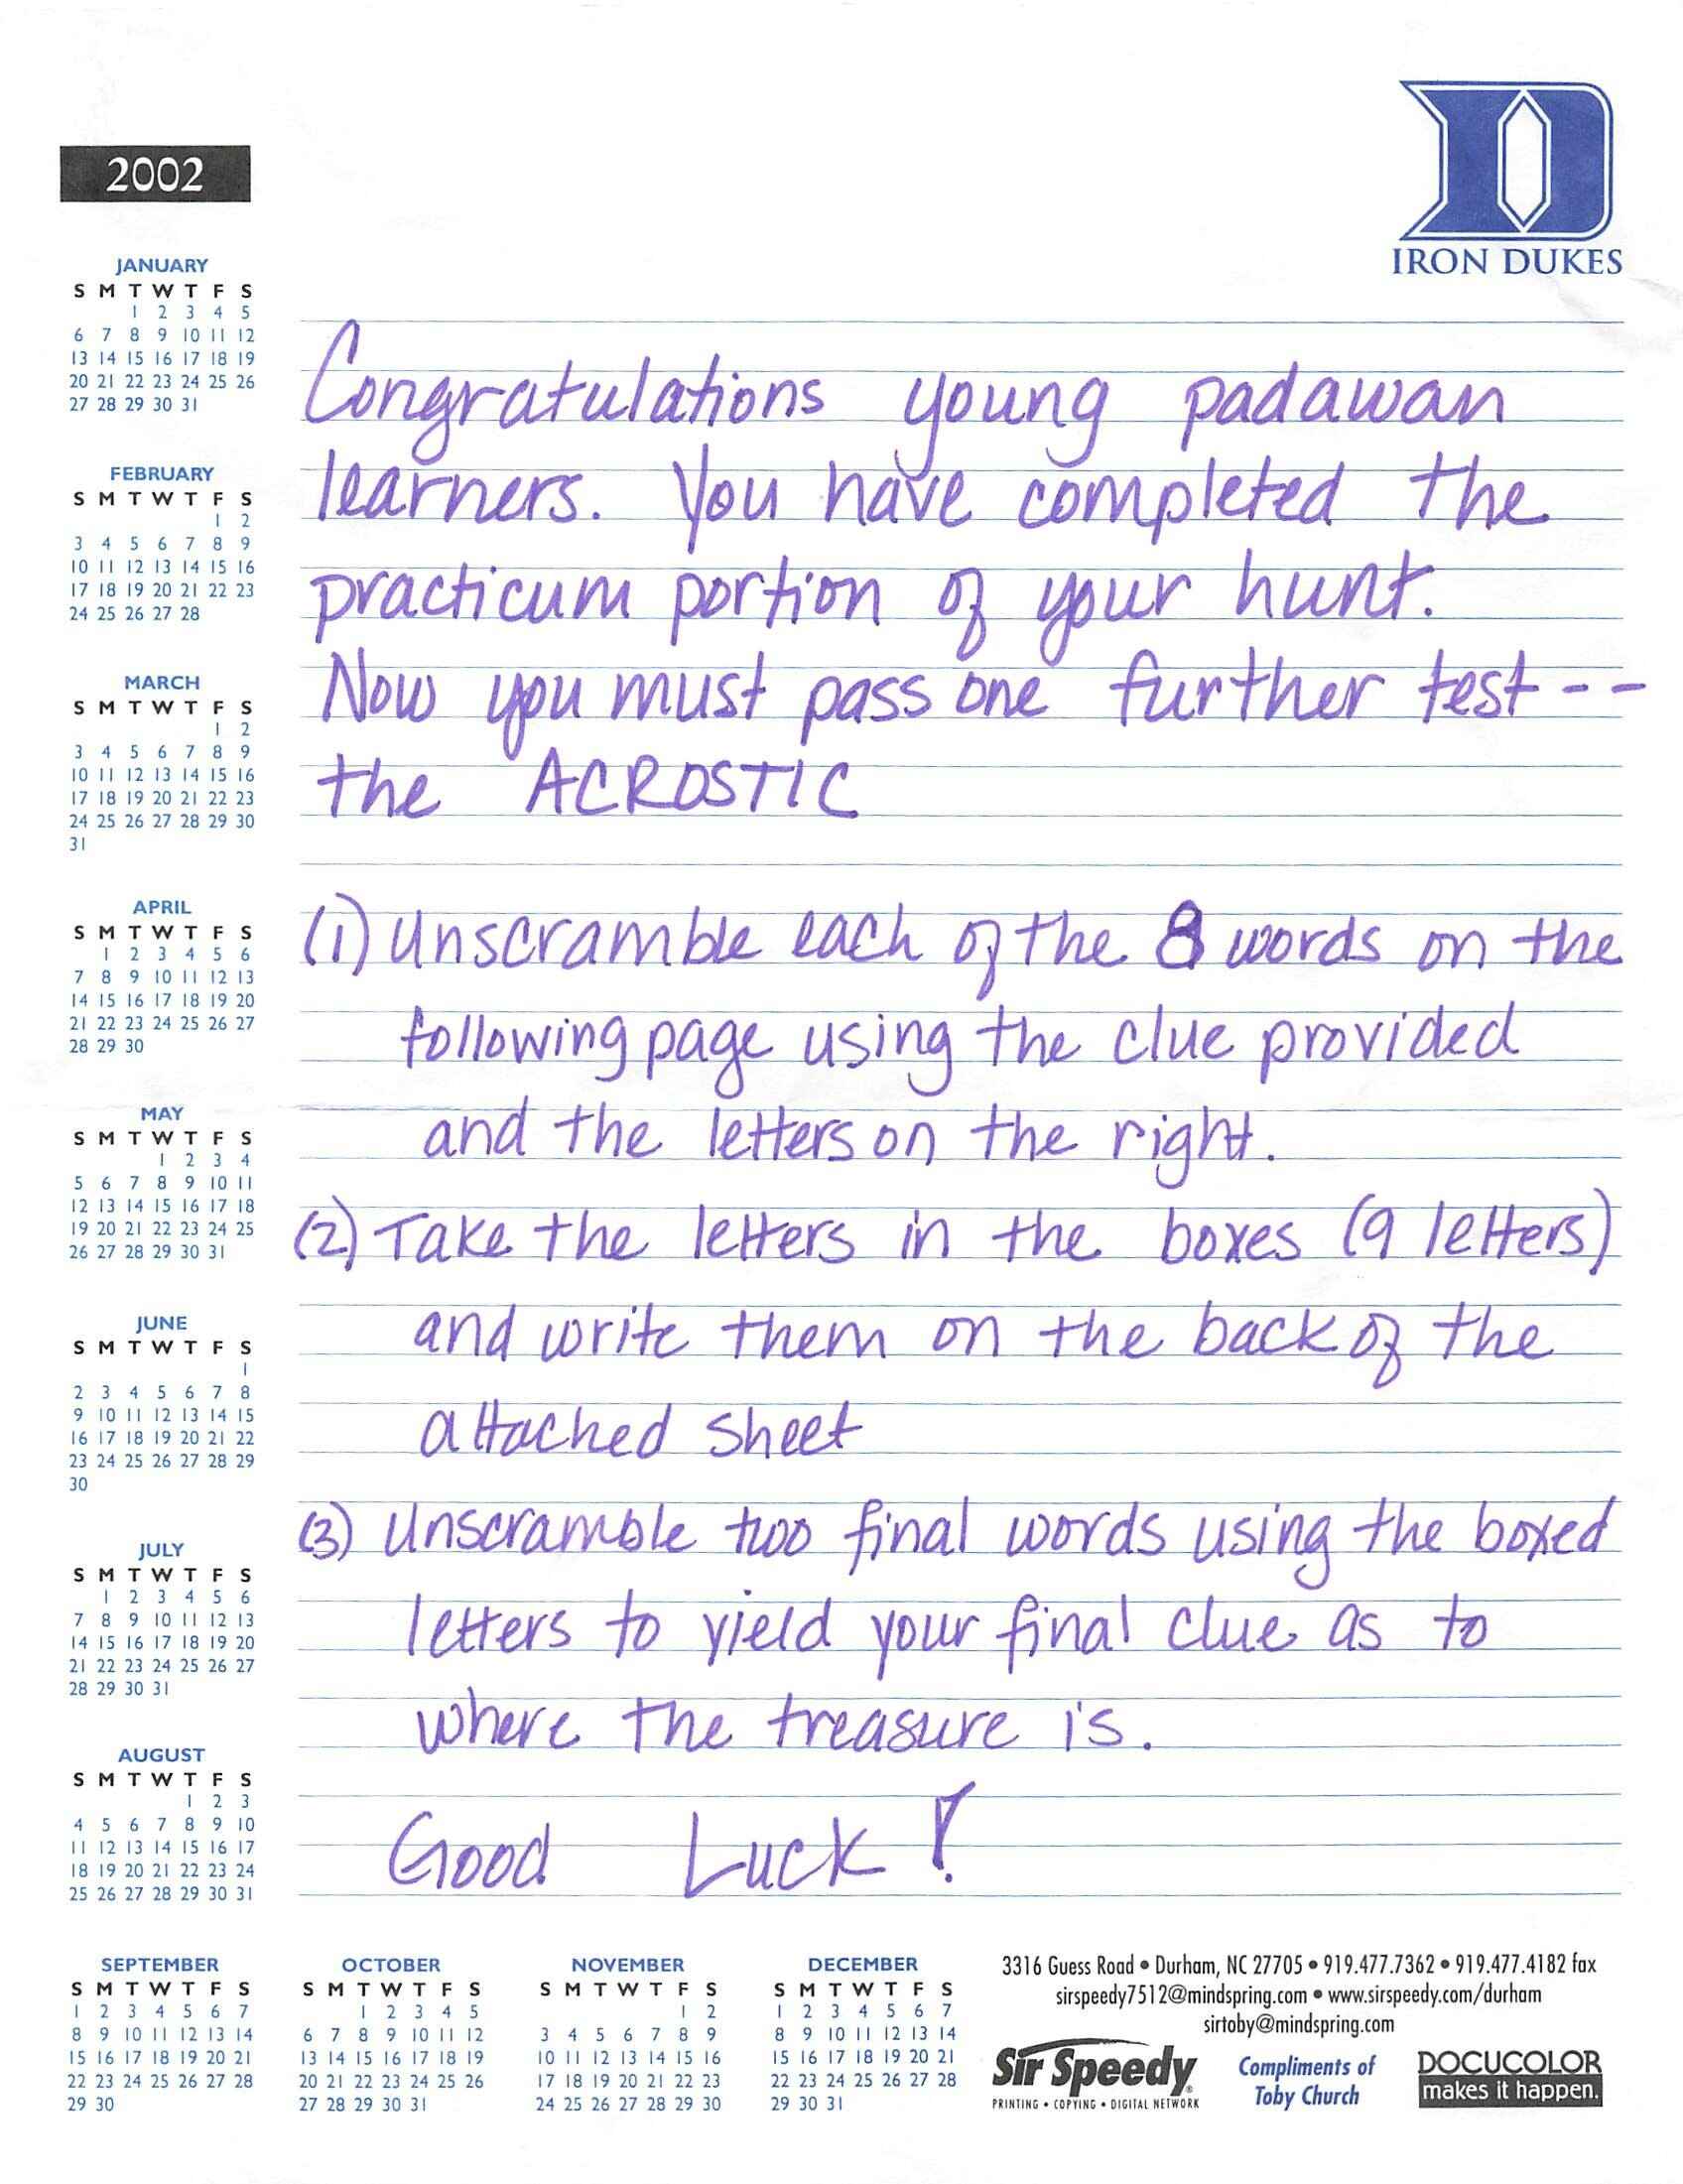 2002
IRON DUKES
JANUARY
S M T W T F S
1 2 3 4 5
6 7 8 9 10 11 12
13 14 15 16 17 18 19
20 21 22 23 24 25 26
27 28 29 30 31
FEBRUARY
S M T W T F S
1 2
3 4 5 6 7 8 9
10 11 12 13 14 15 16
17 18 19 20 21 22 23
24 25 26 27 28
MARCH
S M T W T F S
1 2
3 4 5 6 7 8 9
10 11 12 13 14 15 16
17 18 19 20 21 22 23
24 25 26 27 28 29 30
31
APRIL
S M T W T F S
1 2 3 4 5 6
7 8 9 10 11 12 13
14 15 16 17 18 19 20
21 22 23 24 25 26 27
28 29 30
MAY
S M T W T F S
1 2 3 4
5 6 7 8 9 10 11
12 13 14 15 16 17 18
19 20 21 22 23 24 25
26 27 28 29 30 31
JUNE
S M T W T F S
1
2 3 4 5 6 7 8
9 10 11 12 13 14 15
16 17 18 19 20 21 22
23 24 25 26 27 28 29
30
JULY
S M T W T F S
1 2 3 4 5 6
7 8 9 10 11 12 13
14 15 16 17 18 19 20
21 22 23 24 25 26 27
28 29 30 31
AUGUST
S M T W T F S
1 2 3
4 5 6 7 8 9 10
11 12 13 14 15 16 17
18 19 20 21 22 23 24
25 26 27 28 29 30 31
Congratulations young padawan
learners. You have completed the
practicum portion of your hunt.
Now you must pass one further test--
the ACROSTIC
(1) Unscramble each of the 8 words on the
following page using the clue provided
and the letters on the right.
(2) Take the letters in the boxes (9 letters)
and write them on the back of the
attached sheet
(3) Unscramble two final words using the boxed
letters to yield your final clue as to
where the treasure is.
Good Luck!
SEPTEMBER
S M T W T F S
1 2 3 4 5 6 7
8 9 10 11 12 13 14
15 16 17 18 19 20 21
22 23 24 25 26 27 28
29 30
OCTOBER
S M T W T F S
1 2 3 4 5
6 7 8 9 10 11 12
13 14 15 16 17 18 19
20 21 22 23 24 25 26
27 28 29 30 31
NOVEMBER
S M T W T F S
1 2
3 4 5 6 7 8 9
10 11 12 13 14 15 16
17 18 19 20 21 22 23
24 25 26 27 28 29 30
DECEMBER
S M T W T F S
1 2 3 4 5 6 7
8 9 10 11 12 13 14
15 16 17 18 19 20 21
22 23 24 25 26 27 28
29 30 31
3316 Guess Road • Durham, NC 27705 • 919.477.7362 • 919.477.4182 fax
sirspeedy7512@mindspring.com • www.sirspeedy.com/durham
sirtoby@mindspring.com
Sir Speedy®
PRINTING • COPYING • DIGITAL NETWORK
Compliments of
Toby Church
DOCUCOLOR
makes it happen.